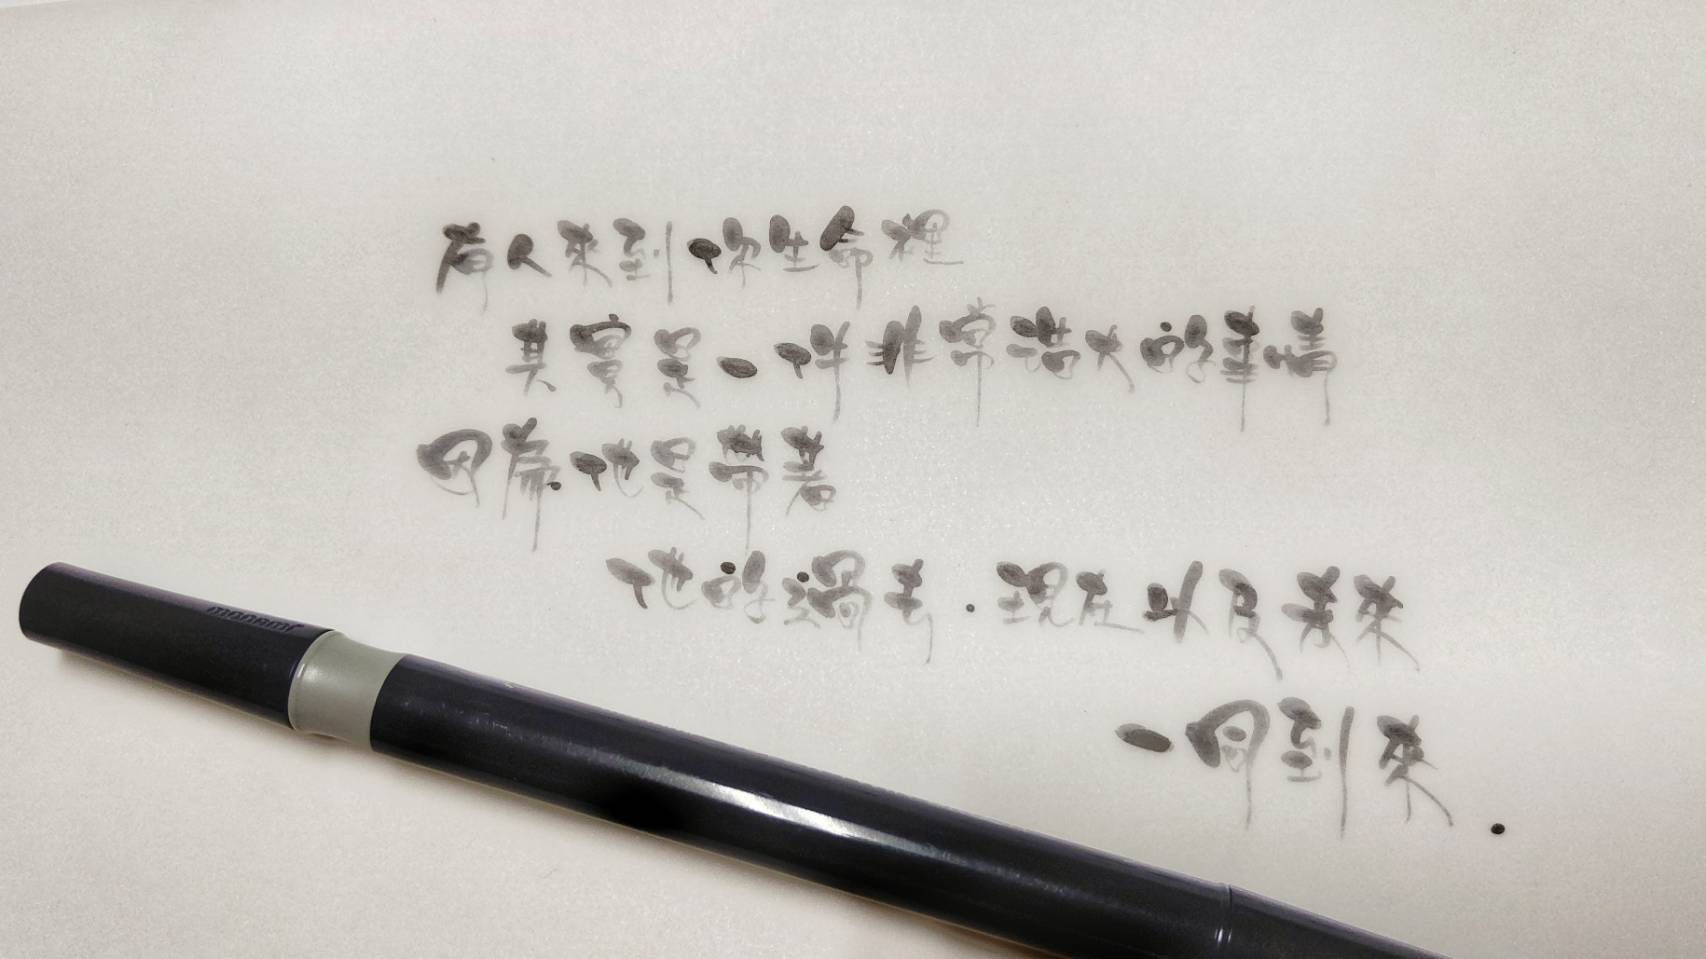 有人來到你生命裡
其實是一件非常浩大的事情
因為他是帶著
他的過去.現在以及未來
一同到來.
monami